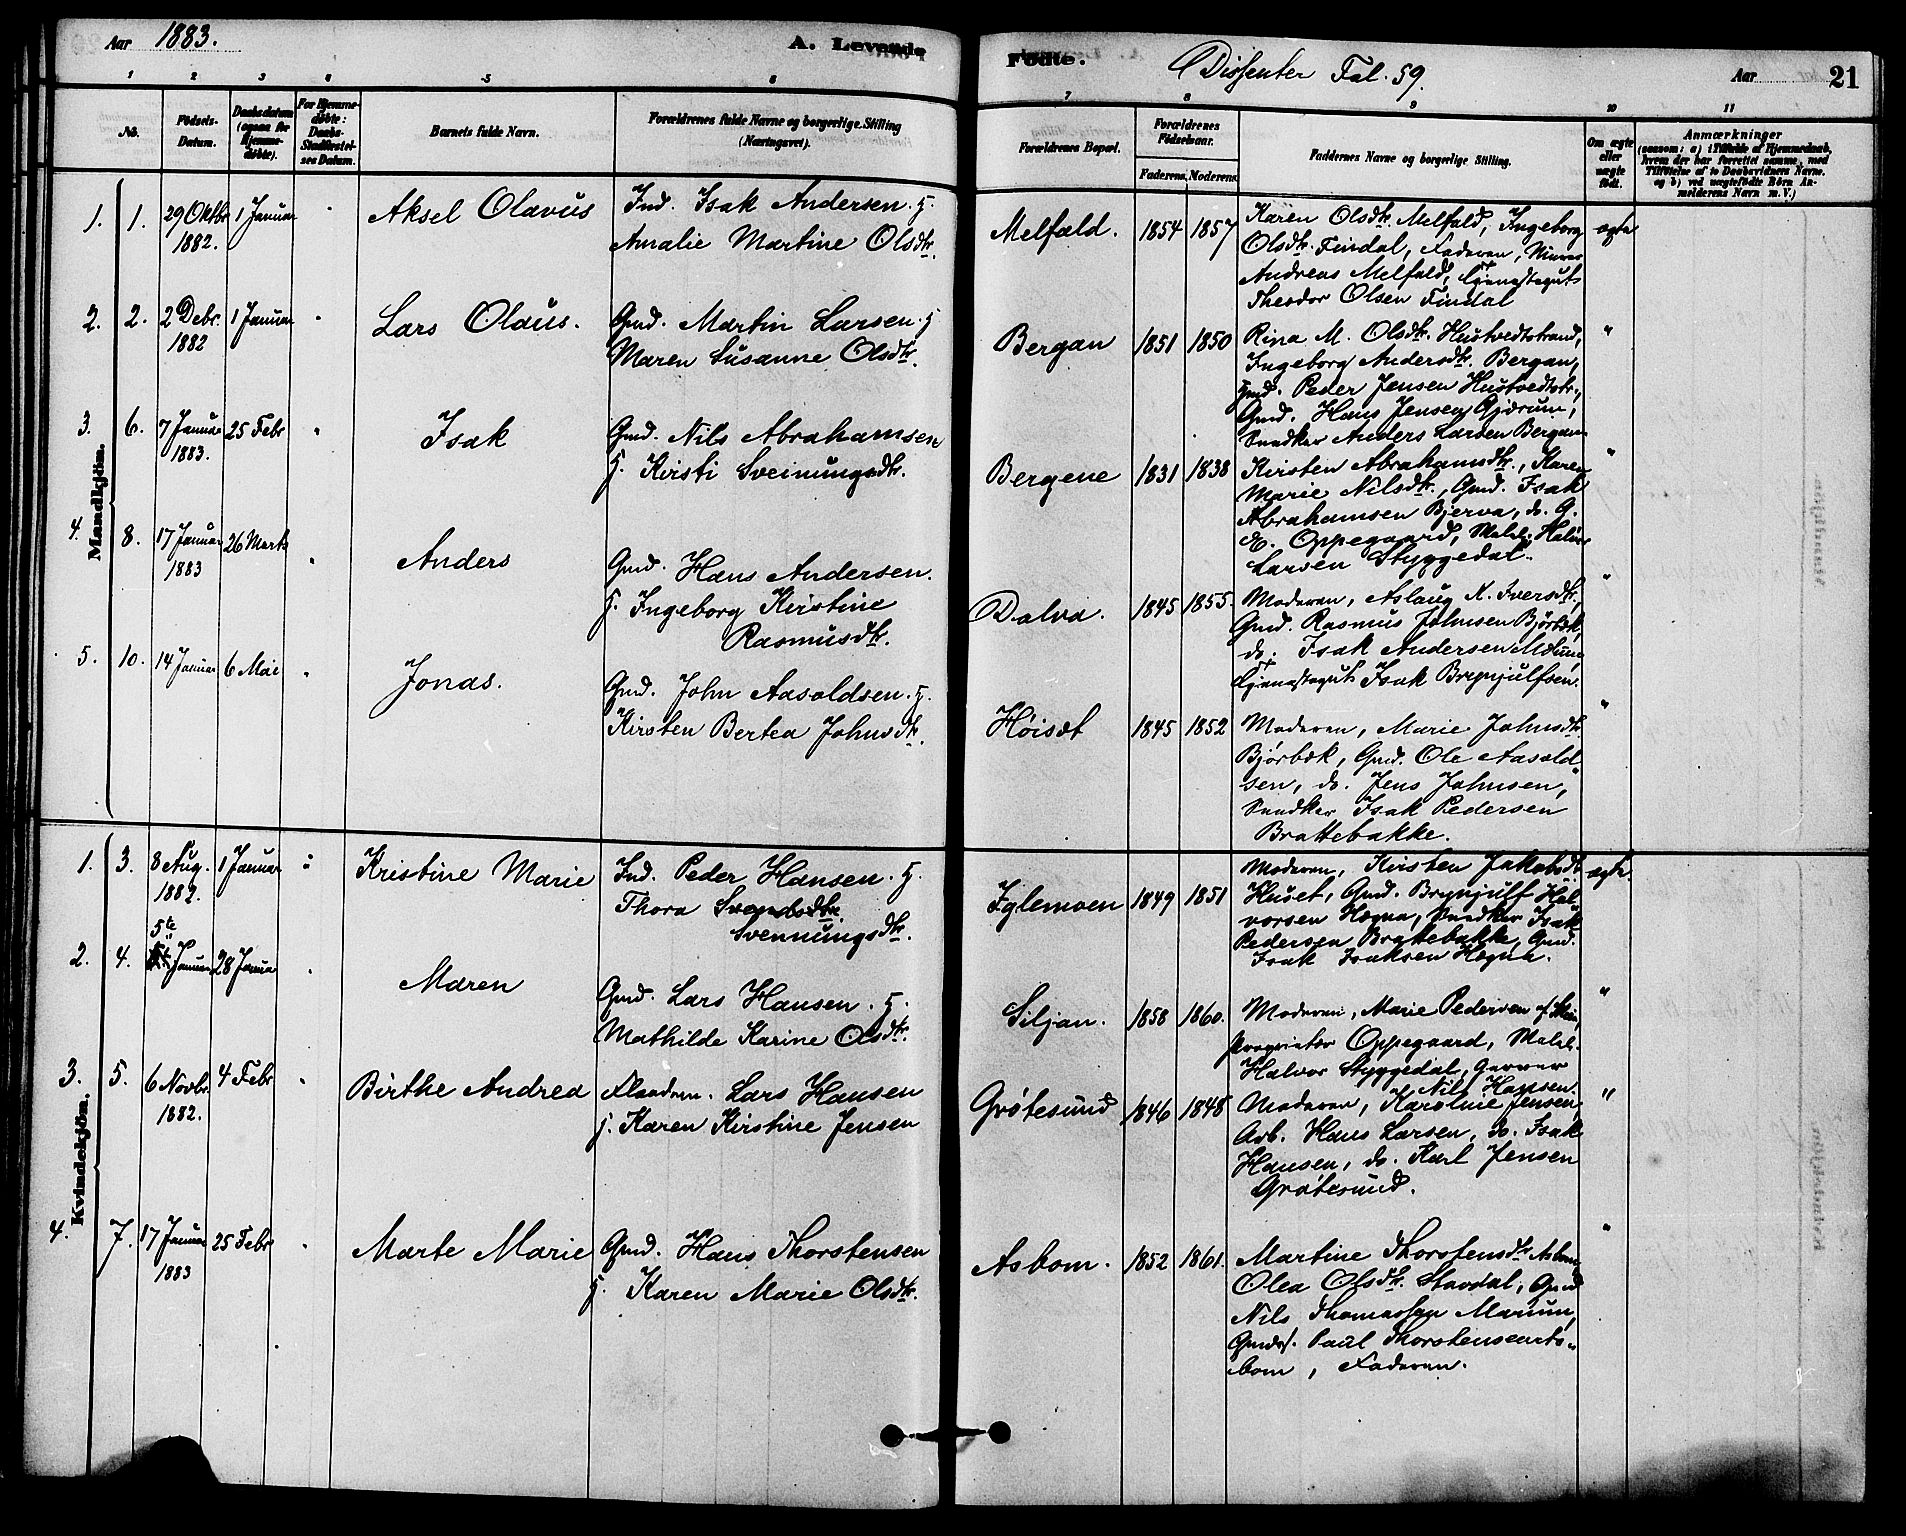 Aar 1883.
A. Levende
Fødte.
Dissenter Fol. 59.
Aar
21
1 2 3 4 5 6
7 8 9 10 11
No.
Fødsels-
Datum.
Daabsdatum
(ogsaa for
Hjemme-
døbte).
For Hjemme-
døbte:
Daabs-
Stadfæstel-
ses Datum.
Barnets fulde Navn.
Forældrenes fulde Navne og borgerlige Stilling
(Næringsvei).
Forældrenes Bopæl.
Forældrenes
Fødselsaar.
Faderens. Moderens.
Faddernes Navne og borgerlige Stilling.
Om ægte
eller
uægte
født.
Anmærkninger
(saasom: a) i Tilfælde af Hjemmedaab,
hvem der har forrettet samme, med
Tilføielse af to Daabsvidners Navne,
og b) ved uægtefødte Børn An-
melderens Navn m. V.)
Mandkjøn.
1. 1. 29 Oktbr 1 Januar
1882.
Aksel Olavus
Ind. Isak Andersen. H.
Amalie Martine Olsdtr.
Melfald. 1854 1857
Karen Olsdtr. Melfald, Ingeborg
Olsdtr. Findal, Faderen,
Andreas Melfald, Tjenestegut
Theodor Olsen Findal
ægte
2. 2. 2 Debr. 1 Januar
1882
Lars Olaus.
Gmd. Martin Larsen. H
Maren Susanne Olsdtr.
Bergan 1851 1850
Rina M. Olsdtr. Hustvedtstrand,
Ingeborg Andersdtr. Bergan,
Gmd. Peder Jensen Hustvedtstr.,
Gmd. Hans Jensen Gjærum,
Snedker Anders Larsen Bergan
"
3. 6. 7 Januar 25 Febr
1883.
Isak
Gmd. Nils Abrahamsen
H. Kirsti Sveinungsdtr.
Bergene 1831 1838
Kirsten Abrahamsdtr., Karen
Marie Nilsdtr., Gmd. Isak
Abrahamsen Bjerva, do. G.
E. Oppegaard, Halvor
Larsen Styggedal.
"
4. 8. 17 Januar 26 Marts
1883
Anders
Gmd. Hans Andersen.
H. Ingeborg Kirstine
Rasmusdtr.
Dalva. 1845 1855.
Moderen, Aslaug K. Iversdtr,
Gmd. Rasmus Johnsen Bjørbæk,
do. Isak Andersen Mælum,
Tjenestegut Isak Brynjulfsen.
"
5. 10. 14 Januar 6 Mai
Jonas.
Gmd. John Aasoldsen. H.
Kirsten Bertea Johnsdtr.
Høiset 1845 1852
Moderen, Marie Johnsdtr
Bjørbæk, Gmd. Ole Aasold-
sen, do. Jens Johnsen,
Snedker Isak Pedersen
Brattebakke.
"
Kvindekjøn.
1. 3. 8 Aug. 1 Januar
1882.
Kristine Marie
Ind. Peder Hansen. H.
Thora
Svennungsdtr.
Iglemoen 1849 1851
Moderen, Kirsten Jakobsdtr
Huset, Gmd. Brynjulf Hal-
vorsen Hegna, Snedker Isak
Pedersen Brattebakke, Gmd.
Isak Isaksen Hegna.
ægte.
2. 4. 5te Januar 28 Januar
Maren
Gmd. Lars Hansen. H.
Mathilde Karine Olsdtr.
Siljan. 1858 1860.
Moderen, Marie Pedersen af
Proprietær Oppegaard,
Halvor Styggedal, Garver
Nils Hansen.
"
3. 5. 6 Novbr. 4 Febr
1882.
Birthe Andrea
Lars Hansen
H. Karen Kirstine Jensen
Grøtesund 1846 1848
Moderen, Karoline Jensen
Arb. Hans Larsen, do. Isak
Hansen, do. Karl Jensen
Grøtesund.
"
4. 7. 17 Januar 25 Febr
1883
Marte Marie
Gmd. Hans Thorstensen
H. Karen Marie Olsdtr.
Asbom. 1852 1861.
Martine Thorstensdtr Asbom,
Olea Olsdtr. Stavdal, Gmd
Nils Thomassen Marum,
Gmdss. Paul Thorstensen As-
bom, Faderen.
"